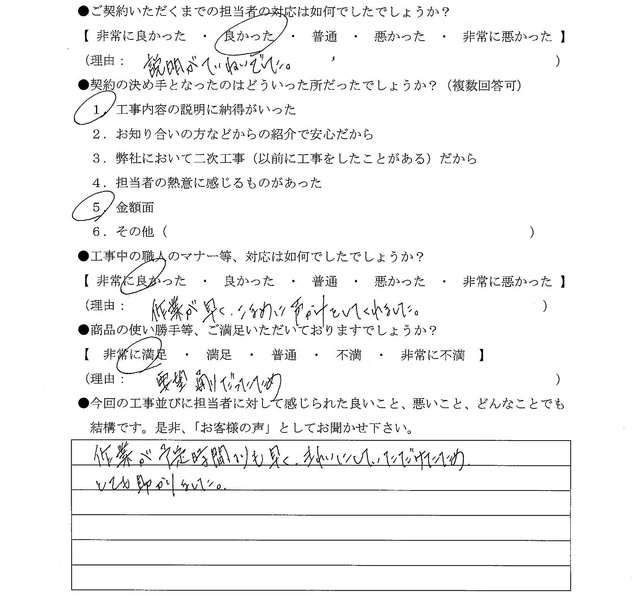 ●ご契約いただくまでの担当者の対応は如何でしたでしょうか？
【 非常に良かった ・ 良かった ・ 普通 ・ 悪かった ・ 非常に悪かった 】
（理由： 説明がていねいでした。 ）
●契約の決め手となったのはどういった所だったでしょうか？（複数回答可）
１．工事内容の説明に納得がいった
２．お知り合いの方などからの紹介で安心だから
３．弊社において二次工事（以前に工事をしたことがある）だから
４．担当者の熱意に感じるものがあった
５．金額面
６．その他（ ）
●工事中の職人のマナー等、対応は如何でしたでしょうか？
【 非常に良かった ・ 良かった ・ 普通 ・ 悪かった ・ 非常に悪かった 】
（理由： 作業が早く、こまめに声かけをしてくれました。 ）
●商品の使い勝手等、ご満足いただいておりますでしょうか？
【 非常に満足 ・ 満足 ・ 普通 ・ 不満 ・ 非常に不満 】
（理由： 要望通りだったため ）
●今回の工事並びに担当者に対して感じられた良いこと、悪いこと、どんなことでも
結構です。是非、「お客様の声」としてお聞かせ下さい。
作業が予定時間よりも早く、きれいにしていただけたため
とても助かりました。